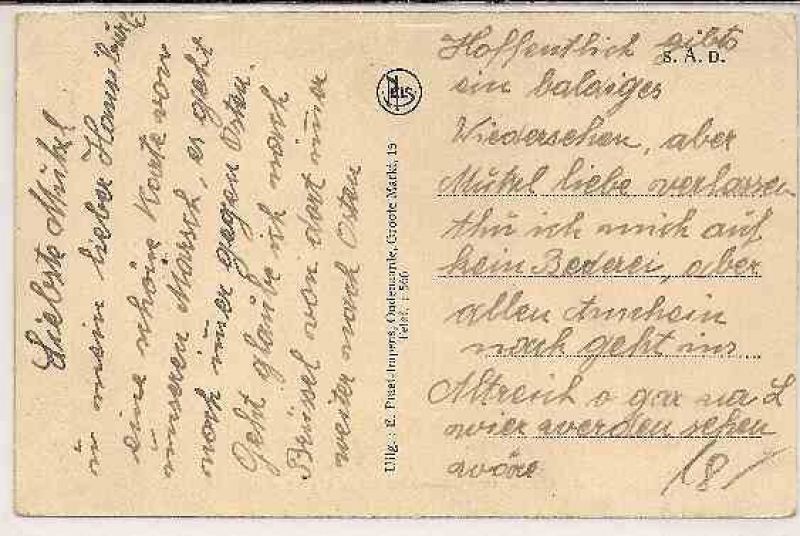 Liebste Mutzl
u mein lieber Hansibua
eine schöne Karte von
unseren Marsch, es geht
noch imer gegen Osten.
Geht glaube ich nach
Brüssel von dort imer
weiter nach Osten
NELS
Uitg.: E. Praet-Impens, Oudenaarde, Groote Markt, 15
Telef. : 566
S. A. D.
Hoffentlich gibts
ein baldiges
Wiedersehen, aber
Mutzl liebe verlassen
thu ich mich auf
kein Rederei, aber
allen Anschein
nach geht ins
Altreich o gar na L
wier werden sehen
wäre
/8/